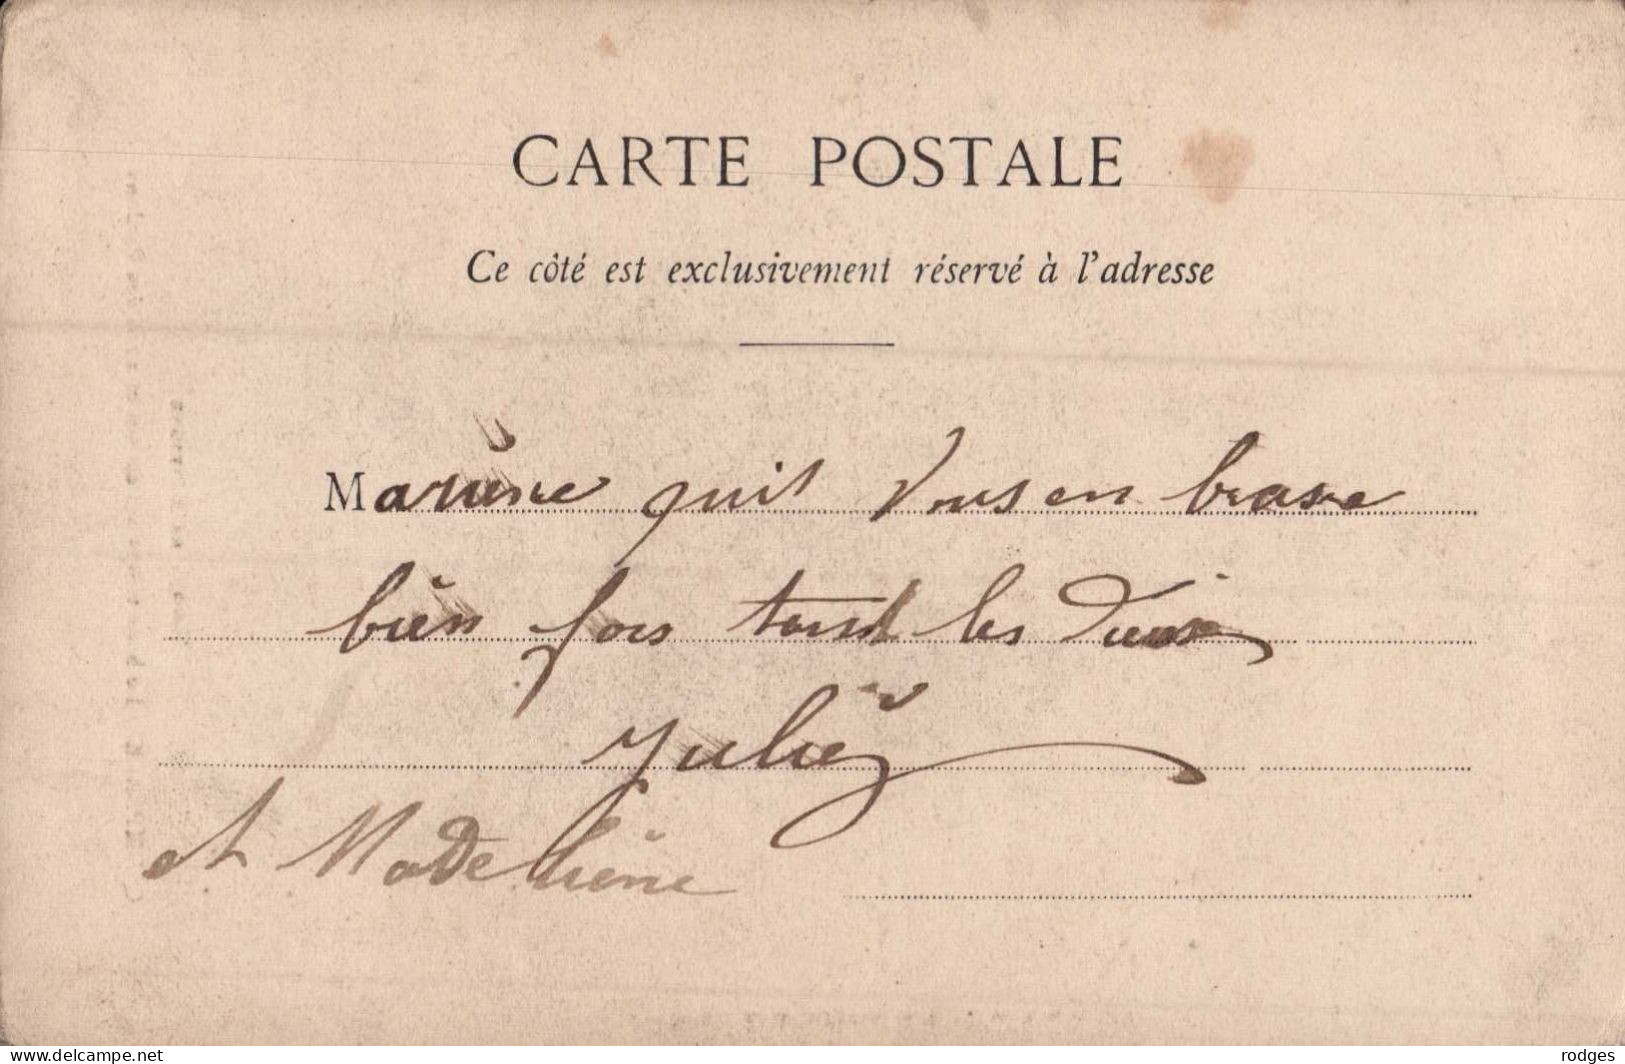 CARTE POSTALE
Ce côté est exclusivement réservé à l'adresse
Mariène quit vous en brasse
bien fors toust les deux
Julie
et Madeliene
www.delcampe.net
rodges